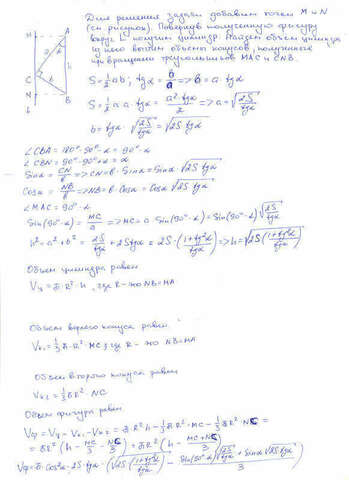 Для решения задачи добавим точки M и N
(см рисунок). Повернув полученную фигуру
вокруг L получим цилиндр. Найдем объем цилиндра
из него вычтем объемы конусов, полученных
при вращении треугольников MAC и CNB.
M
A
a
h
C
b
N
B
L
S = 1/2 ab; tgα = b/a => b = a·tgα
S = 1/2 a·a·tgα = a²·tgα/2 => a = √(2S/tgα)
b = tgα·√(2S/tgα) = √(2S tgα)
∠CBA = 180°-90°-α = 90°-α
∠CBN = 90°-90°+α = α
Sinα = CN/b => CN = b·Sinα = Sinα·√(2S tgα)
Cosα = NB/b => NB = b·Cosα = Cosα √(2S tgα)
∠MAC = 90°-α
Sin(90°-α) = MC/a => MC = a·Sin(90°-α) = Sin(90°-α)√(2S/tgα)
h² = a² + b² = 2S/tgα + 2S tgα = 2S·(1+tg²α/tgα) => h = √(2S(1+tg²α)/tgα)
Объем цилиндра равен
Vц = π·R²·h, где R - это NB=MA
Объем первого конуса равен
Vк₁ = 1/3 π·R²·MC, где R - это NB=MA
Объем второго конуса равен
Vк₂ = 1/3 πR²·NC
Объем фигуры равен
Vф = Vц - Vк₁ - Vк₂ = π·R²·h - 1/3 π·R²·MC - 1/3 π·R²·NC =
= πR²(h - MC/3 - NC/3) = πR²(h - MC+NC/3)
Vф = π·Cos²α·2S·tgα·(√(2S(1+tg²α)/tgα) - Sin(90°-α)√(2S/tgα) + Sinα √(2S tgα)/3)